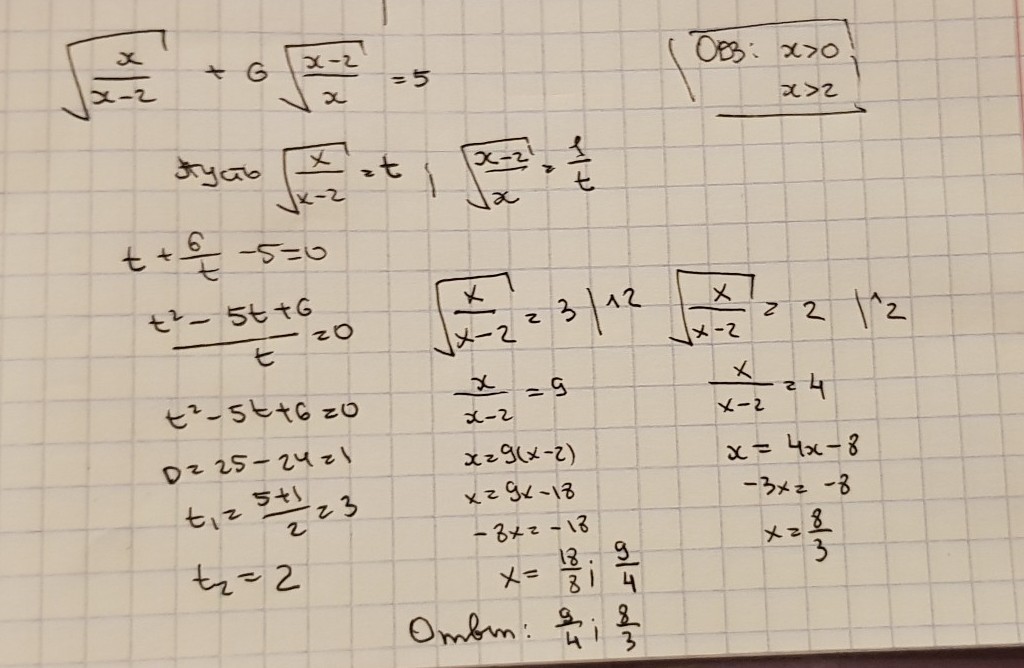 √(x/(x-2)) + 6 √((x-2)/x) = 5
ОВЗ: x>0
x>2
пусть √(x/(x-2)) = t ; √((x-2)/x) = 1/t
t + 6/t - 5 = 0
(t² - 5t + 6)/t = 0
t² - 5t + 6 = 0
D = 25 - 24 = 1
t₁ = (5+1)/2 = 3
t₂ = 2
√(x/(x-2)) = 3 |^2
x/(x-2) = 9
x = 9(x-2)
x = 9x - 18
-8x = -18
x = 18/8 ; 9/4
√(x/(x-2)) = 2 |^2
x/(x-2) = 4
x = 4x - 8
-3x = -8
x = 8/3
Ответ: 9/4 ; 8/3